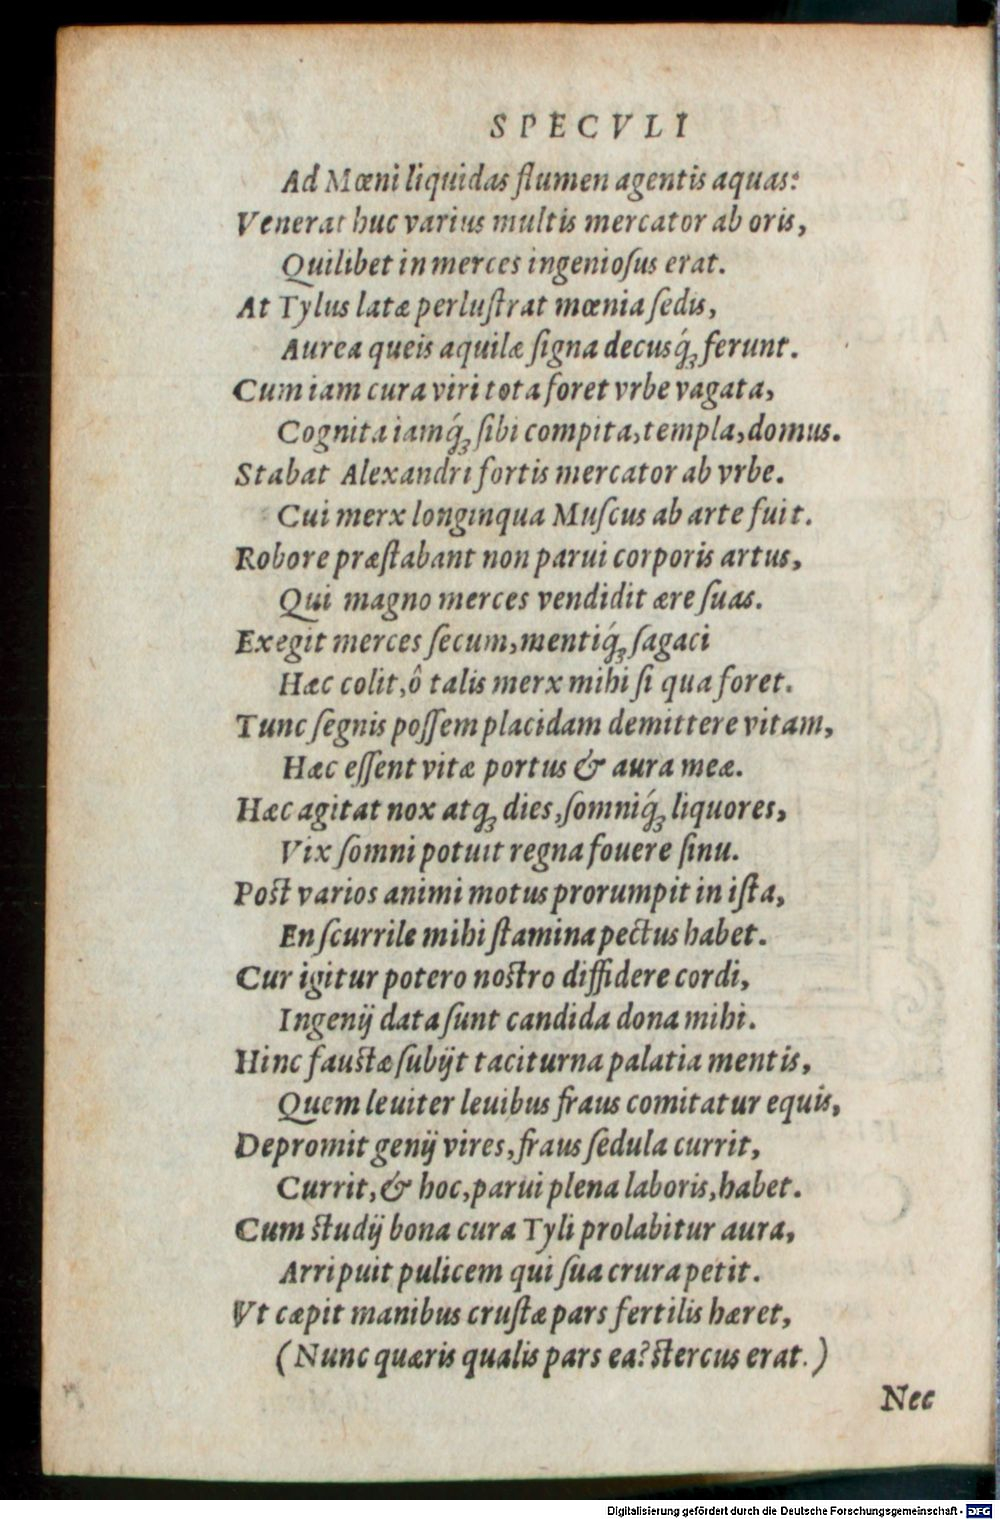 SPECVLI
Ad Mœni liquidas flumen agentis aquas:
Venerat huc varius multis mercator ab oris,
Quilibet in merces ingenioſus erat.
At Tylus latæ perluſtrat mœnia ſedis,
Aurea queis aquilæ ſigna decusq́ꝫ ferunt.
Cum iam cura viri tota foret vrbe vagata,
Cognita iamq́ꝫ ſibi compita, templa, domus.
Stabat Alexandri fortis mercator ab vrbe.
Cui merx longinqua Muſcus ab arte fuit.
Robore præſtabant non parui corporis artus,
Qui magno merces vendidit ære ſuas.
Exegit merces ſecum, mentiq́ꝫ ſagaci
Hæc colit, ô talis merx mihi ſi qua foret.
Tunc ſegnis poſſem placidam demittere vitam,
Hæc eſſent vitæ portus & aura meæ.
Hæc agitat nox atqꝫ dies, ſomniq́ꝫ liquores,
Vix ſomni potuit regna fouere ſinu.
Poſt varios animi motus prorumpit in iſta,
En ſcurrile mihi ſtamina pectus habet.
Cur igitur potero noſtro diffidere cordi,
Ingenij data ſunt candida dona mihi.
Hinc fauſtæ ſubijt taciturna palatia mentis,
Quem leuiter leuibus fraus comitatur equis,
Depromit genij vires, fraus ſedula currit,
Currit, & hoc, parui plena laboris, habet.
Cum ſtudij bona cura Tyli prolabitur aura,
Arripuit pulicem qui ſua crura petit.
Vt cæpit manibus cruſtæ pars fertilis hæret,
(Nunc quæris qualis pars ea? ſtercus erat.)
Nec
Digitalisierung gefördert durch die Deutsche Forschungsgemeinschaft - DFG